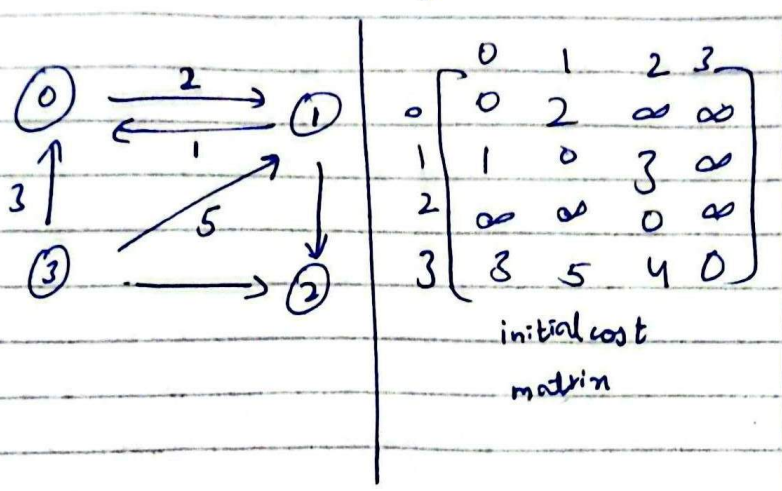 2
0 1
1
3
5
3 2
0 1 2 3
0 0 2 ∞ ∞
1 1 0 3 ∞
2 ∞ ∞ 0 ∞
3 3 5 4 0
initial cost
matrix